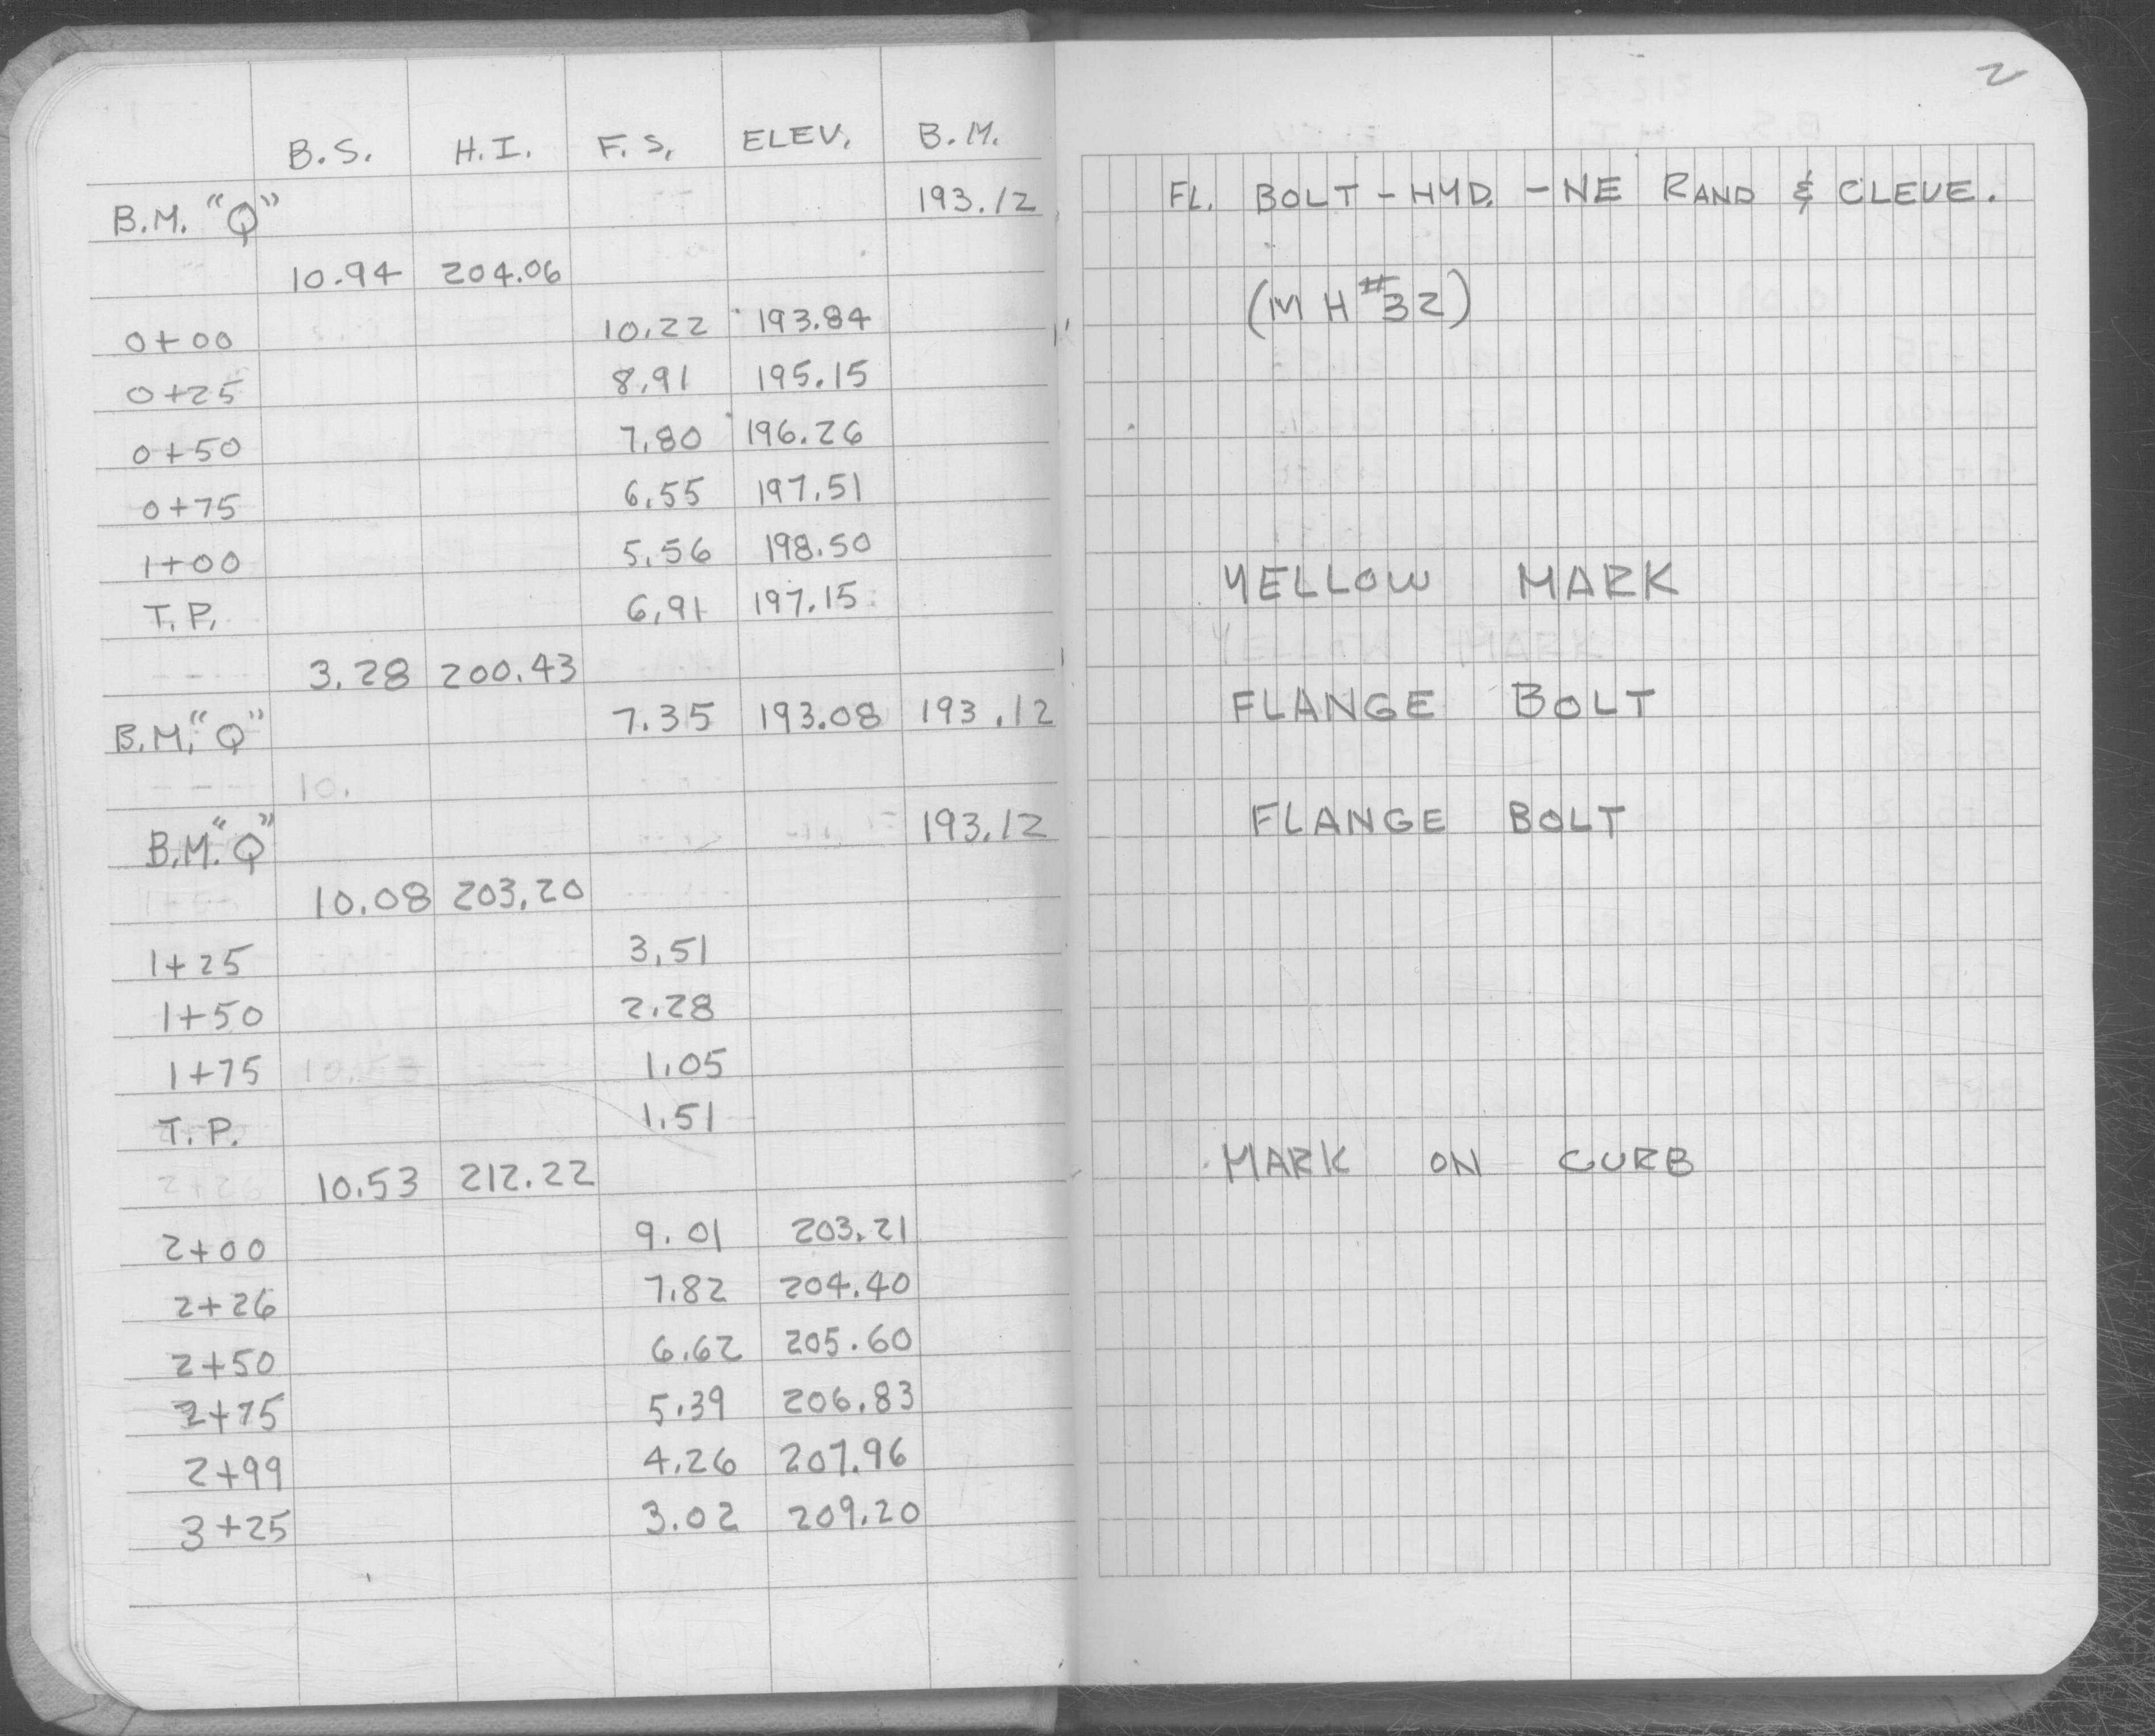 2
B.S. H.I. F.S. ELEV. B.M.
B.M. "Q" 193.12 FL. BOLT - HYD. - NE RAND & CLEVE.
10.94 204.06
0+00 10.22 193.84 (MH #32)
0+25 8.91 195.15
0+50 7.80 196.26
0+75 6.55 197.51
1+00 5.56 198.50
T.P. 6.91 197.15 YELLOW MARK
3.28 200.43
B.M. "Q" 7.35 193.08 193.12 FLANGE BOLT
10.
B.M. "Q" 193.12 FLANGE BOLT
10.08 203.20
1+25 3.51
1+50 2.28
1+75 1.05
T.P. 1.51 MARK ON CURB
10.53 212.22
2+00 9.01 203.21
2+26 7.82 204.40
2+50 6.62 205.60
2+75 5.39 206.83
2+99 4.26 207.96
3+25 3.02 209.20